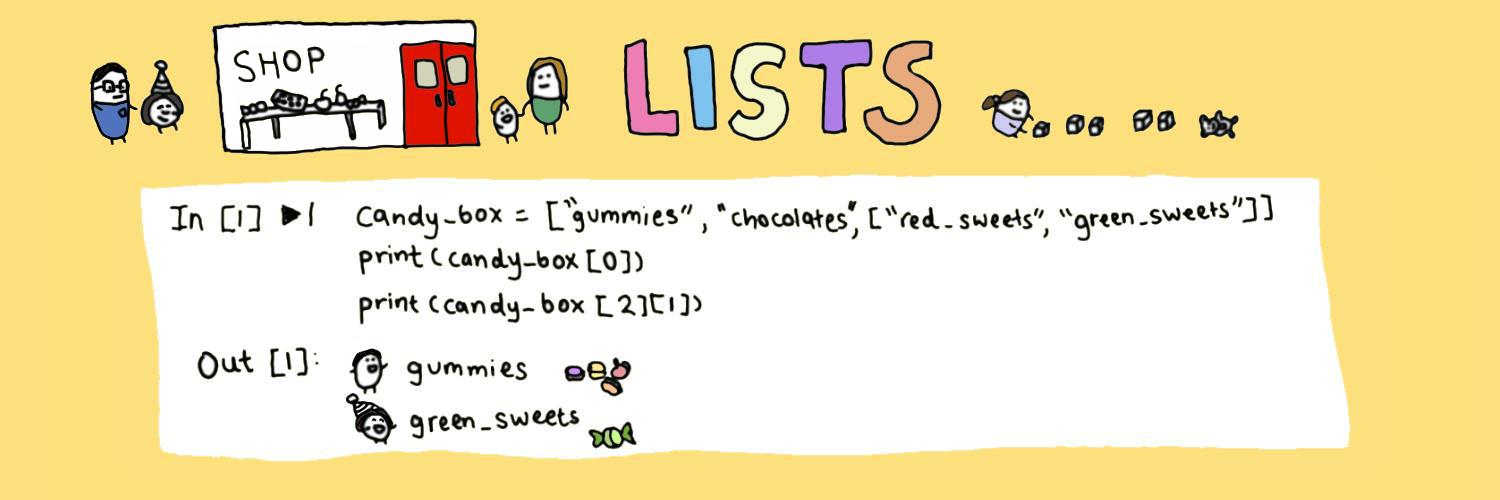 SHOP
LISTS
In [1] candy_box = ["gummies", "chocolates", ["red_sweets", "green_sweets"]]
print(candy_box[0])
print(candy_box[2][1])
Out [1]: gummies
green_sweets